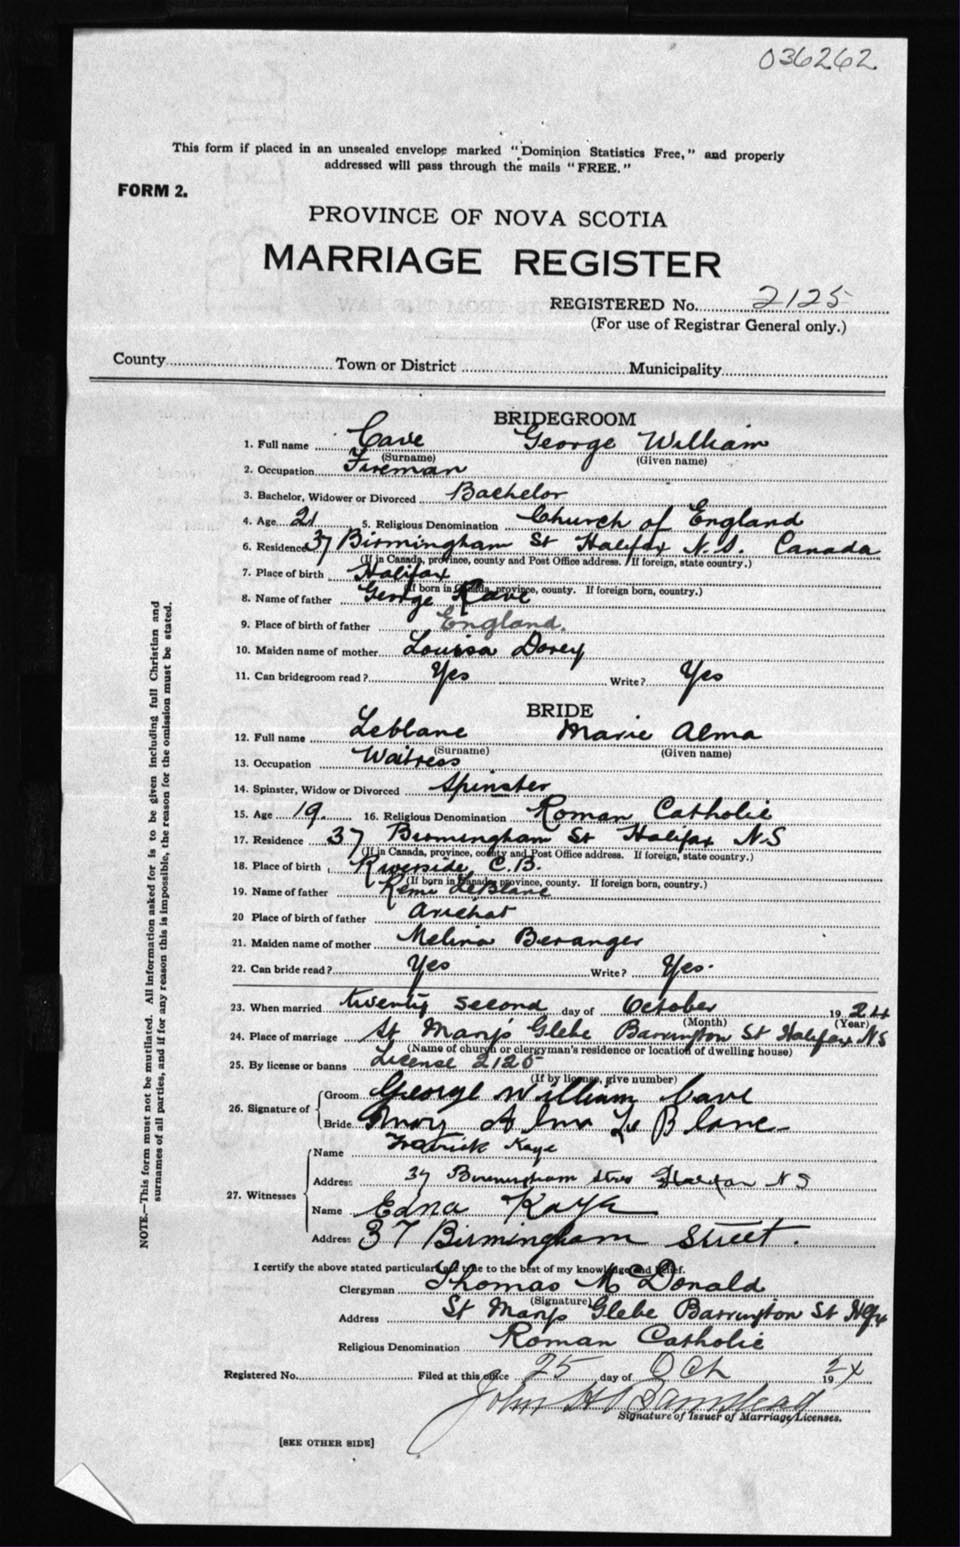 036262
This form if placed in an unsealed envelope marked "Dominion Statistics Free," and properly
addressed will pass through the mails "FREE."
FORM 2.
PROVINCE OF NOVA SCOTIA
MARRIAGE REGISTER
REGISTERED No. 2125
(For use of Registrar General only.)
County Town or District Municipality
BRIDEGROOM
1. Full name Cave George William
(Surname) (Given name)
2. Occupation Fireman
3. Bachelor, Widower or Divorced Bachelor
4. Age 21 5. Religious Denomination Church of England
6. Residence 37 Birmingham St Halifax N.S. Canada
(If in Canada, province, county and Post Office address. If foreign, state country.)
7. Place of birth Halifax
(If born in Canada, province, county. If foreign born, country.)
8. Name of father George Kave
9. Place of birth of father England.
10. Maiden name of mother Louisa Dorey
11. Can bridegroom read? Yes Write? Yes
BRIDE
12. Full name Leblanc Marie Alma
(Surname) (Given name)
13. Occupation Waitress
14. Spinster, Widow or Divorced Spinster
15. Age 19. 16. Religious Denomination Roman Catholic
17. Residence 37 Birmingham St Halifax N.S
(If in Canada, province, county and Post Office address. If foreign, state country.)
18. Place of birth Riverside, C.B.
(If born in Canada, province, county. If foreign born, country.)
19. Name of father Remi LeBlanc
20 Place of birth of father Arichat
21. Maiden name of mother Melina Beranger
22. Can bride read? Yes Write? Yes.
23. When married twenty second day of October 1924
(Month) (Year)
24. Place of marriage St Mary's Glebe Barrington St Halifax NS
(Name of church or clergyman's residence or location of dwelling house)
25. By license or banns License 2125
(If by license, give number)
26. Signature of
Groom George William Cave
Bride Mary Alma Le Blanc
27. Witnesses
Name Kaye
Address 37 Birmingham Halifax N S
Name Edna Kaye
Address 37 Birmingham Street.
I certify the above stated particulars are true to the best of my knowledge and belief.
Clergyman Thomas McDonald
(Signature)
Address St Mary's Glebe Barrington St Hfx
Religious Denomination Roman Catholic
Registered No. Filed at this office 25 day of Oct 1924
John H Barnstead
Signature of Issuer of Marriage Licenses.
[SEE OTHER SIDE]
NOTE.—This form must not be mutilated. All information asked for is to be given including full Christian and
surnames of all parties, and if for any reason this is impossible, the reason for the omission must be stated.